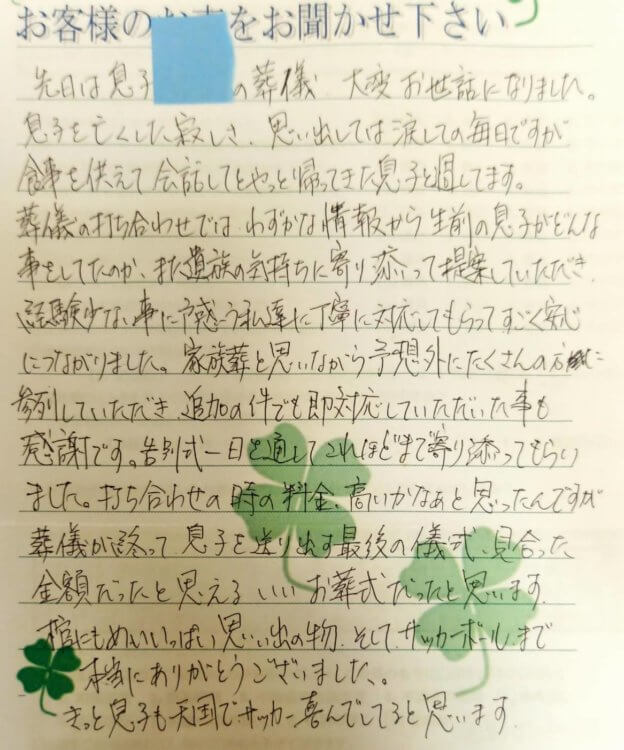 お客様のお声をお聞かせ下さい
先日は息子 の葬儀、大変お世話になりました。
息子を亡くした寂しさ、思い出しては涙しての毎日ですが
食事を供えて会話してとやっと帰ってきた息子と過してます。
葬儀の打ち合わせでは、わずかな情報から生前の息子がどんな
事をしてたのか、また遺族の気持ちに寄り添って提案していただき、
経験少ない事に戸惑う私達に丁寧に対応してもらってすごく安心
につながりました。家族葬と思いながら予想外にたくさんの方
参列していただき、追加の件でも即対応していただいた事も
感謝です。告別式一日を通してこれほどまで寄り添ってもらい
ました。打ち合わせの時の料金、高いかなぁと思ったんですが
葬儀が終って、息子を送り出す最後の儀式、見合った
金額だったと思える いいお葬式だったと思います。
棺にもめいいっぱい思い出の物、そして、サッカーボールまで
本当にありがとうございました。
きっと息子も天国でサッカー喜んでしてると思います。